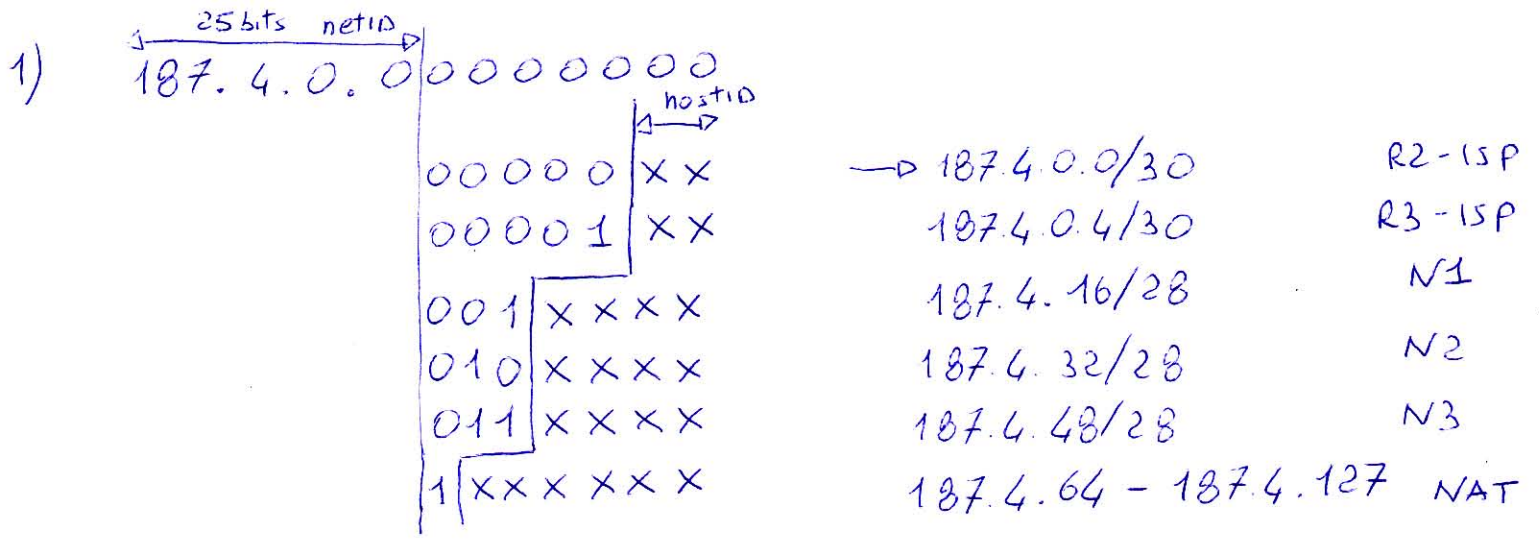 25bits netID
1) 187.4.0.0 0000000
hostID
00000 XX → 187.4.0.0/30 R2-ISP
00001 XX 187.4.0.4/30 R3-ISP
001 XXXX 187.4.16/28 N1
010 XXXX 187.4.32/28 N2
011 XXXX 187.4.48/28 N3
1 XXXXXX 187.4.64 - 187.4.127 NAT